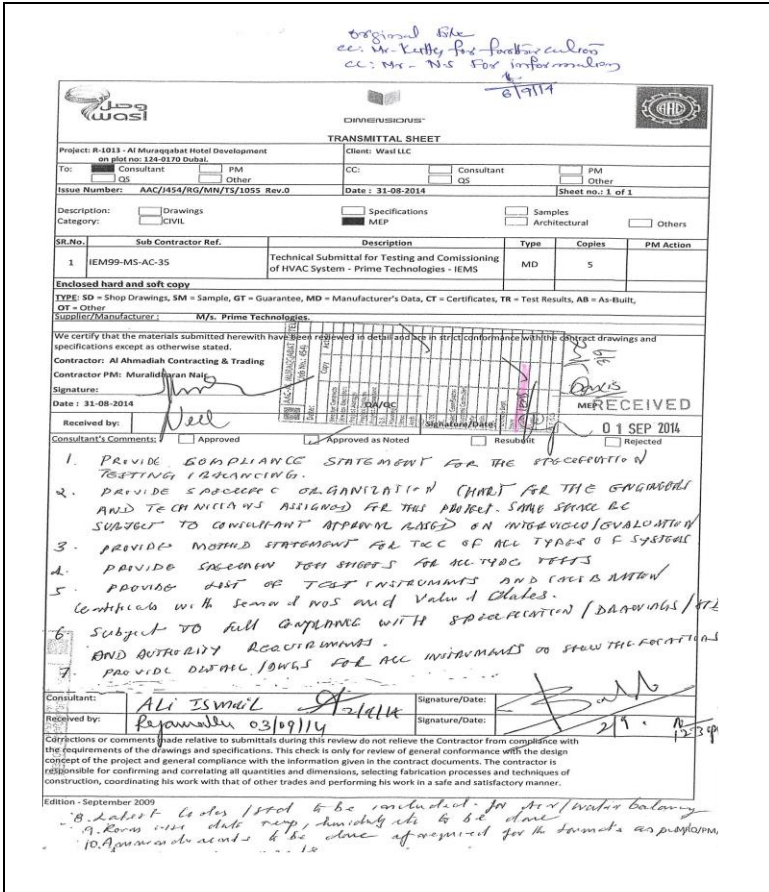 original file
cc: Mr- Kutty for further action
cc: Mr- N.S For information
6/9/14
وصل
wasl
DIMENSIONS
AAC
TRANSMITTAL SHEET
Project: R-1013 - Al Muraqqabat Hotel Development
on plot no: 124-0170 Dubai.
Client: Wasl LLC
To: Consultant PM
QS Other
CC: Consultant PM
QS Other
Issue Number: AAC/J454/RG/MN/TS/1055 Rev.0
Date : 31-08-2014
Sheet no.: 1 of 1
Description: Drawings Specifications Samples
Category: CIVIL MEP Architectural Others
SR.No. Sub Contractor Ref. Description Type Copies PM Action
1 IEM99-MS-AC-35 Technical Submittal for Testing and Comissioning
of HVAC System - Prime Technologies - IEMS MD 5
Enclosed hard and soft copy
TYPE: SD = Shop Drawings, SM = Sample, GT = Guarantee, MD = Manufacturer's Data, CT = Certificates, TR = Test Results, AB = As-Built,
OT = Other
Supplier/Manufacturer : M/s. Prime Technologies.
We certify that the materials submitted herewith have been reviewed in detail and are in strict conformance with the contract drawings and
specifications except as otherwise stated.
Contractor: Al Ahmadiah Contracting & Trading
Contractor PM: Muralidharan Nair
Signature:
Date : 31-08-2014
QA/QC
MEP
RECEIVED
01 SEP 2014
Received by:
Signature/Date:
Consultant's Comments: Approved Approved as Noted Resubmit Rejected
1. PROVIDE COMPLIANCE STATEMENT FOR THE SPECIFICATION
TESTING / BALANCING.
2. PROVIDE SPECIFIC ORGANIZATION CHART FOR THE ENGINEERS
AND TECHNICIANS ASSIGNED FOR THIS PROJECT. SAME SHALL BE
SUBJECT TO CONSULTANT APPROVAL BASED ON INTERVIEW/EVALUATION
3. PROVIDE METHOD STATEMENT FOR T&C OF ALL TYPES OF SYSTEMS
4. PROVIDE SPECIMEN TEST SHEETS FOR ALL TYPE TESTS
5. PROVIDE LIST OF TEST INSTRUMENTS AND CALIBRATION
Certificates with serial nos and Valid Dates.
6. Subject TO full COMPLIANCE WITH SPECIFICATION / DRAWINGS / STD
AND AUTHORITY REQUIREMENTS.
7. PROVIDE DETAIL /DWGS FOR ALL INSTRUMENTS TO SHOW THE LOCATIONS
Consultant: ALI ISMAIL 2/9/14
Signature/Date:
Received by: 03/09/14
Signature/Date: 2/9.
Corrections or comments made relative to submittals during this review do not relieve the Contractor from compliance with
the requirements of the drawings and specifications. This check is only for review of general conformance with the design
concept of the project and general compliance with the information given in the contract documents. The contractor is
responsible for confirming and correlating all quantities and dimensions, selecting fabrication processes and techniques of
construction, coordinating his work with that of other trades and performing his work in a safe and satisfactory manner.
Edition - September 2009
8. Latest Codes /std to be included for Air/water balancing
9. Room wise data temp, humidity etc to be done
10. Ammendments to be done as required for the formats as per